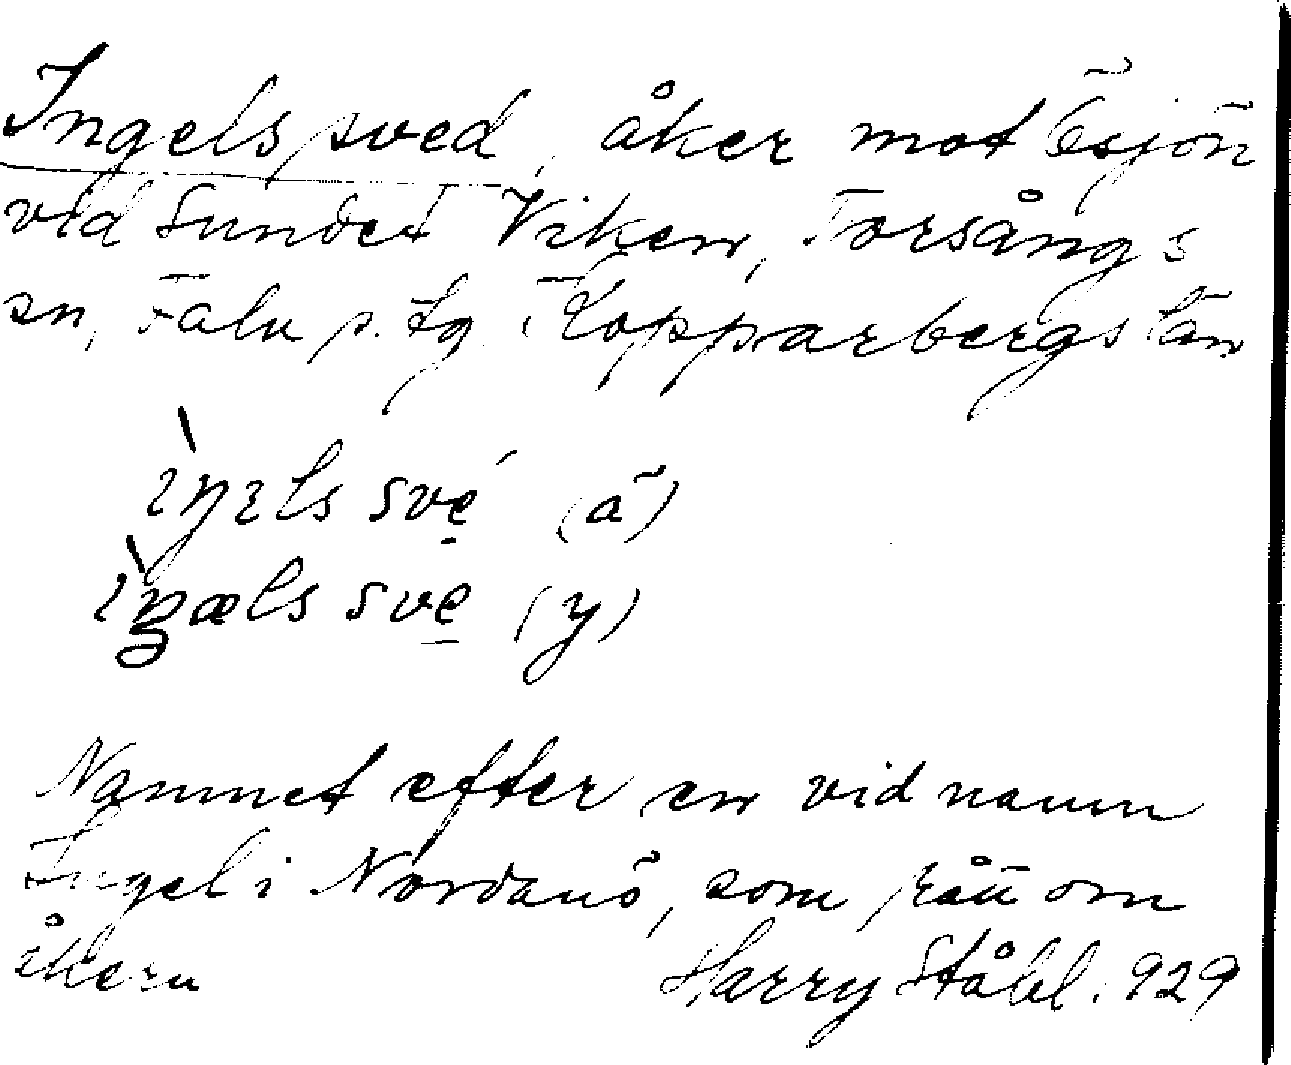 Ingelssved, åker mot Ösjön
vid Sundet Viken, Torsångs
sn, Falu s. tg. Kopparbergs län
ìŋɛls své (ä)
ìŋæls sve (y)
Namnet efter en vid namn
Ingel i Nordanö, som rått om
åkern Harry Ståhl. 929